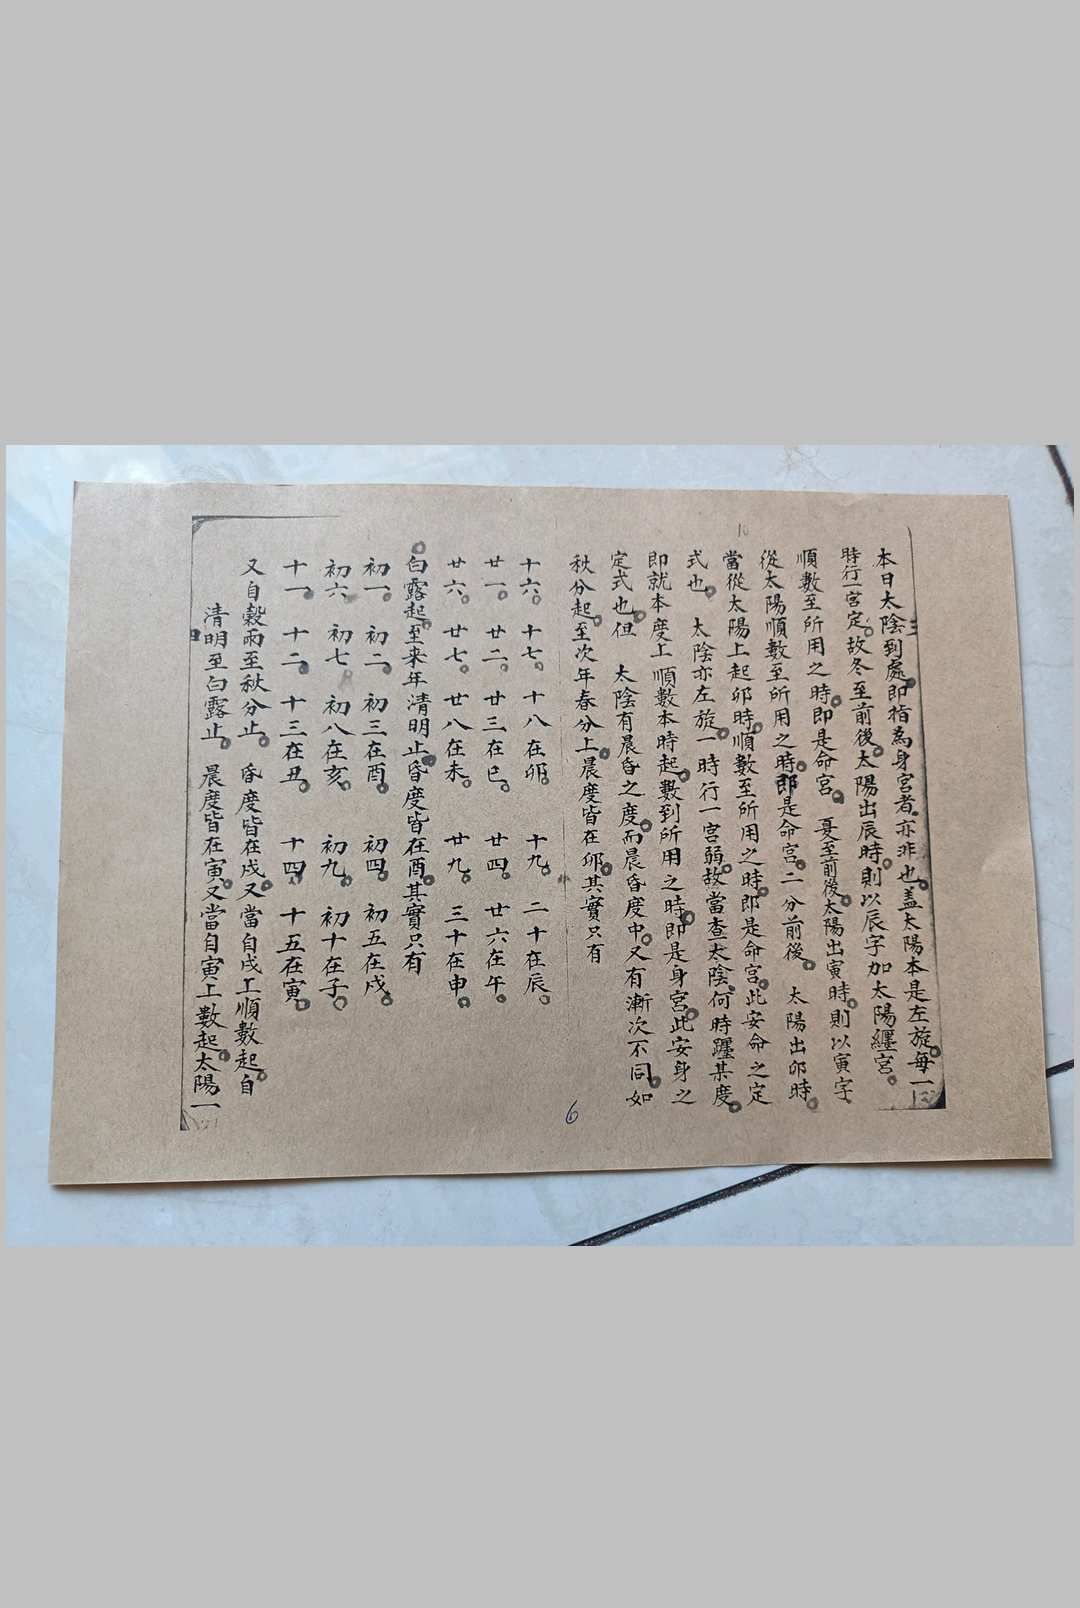 10
本日太陰到處即指為身宮者亦非也蓋太陽本是左旋每一
時行一宮定故冬至前後太陽出辰時則以辰字加太陽纏宮
順數至所用之時即是命宮 夏至前後太陽出寅時則以寅字
從太陽順數至所用之時即是命宮二分前後 太陽出卯時
當從太陽上起卯時順數至所用之時即是命宮此安命之定
式也 太陰亦左旋一時行一宮弱故當查太陰何時躔某度
即就本度上順數本時起數到所用之時即是身宮此安身之
定式也但 太陰有晨昏之度而晨昏度中又有漸次不同如
秋分起至次年春分上晨度皆在卯其實只有
十六 十七 十八在卯 十九 二十在辰
廿一 廿二 廿三在巳 廿四 廿六在午
廿六 廿七 廿八在未 廿九 三十在申
白露起至來年清明止昏度皆在酉其實只有
初一 初二 初三在酉 初四 初五在戌
初六 初七 初八在亥 初九 初十在子
十一 十二 十三在丑 十四 十五在寅
又自穀雨至秋分止 昏度皆在戌又當自戌上順數起自
清明至白露止 晨度皆在寅又當自寅上數起太陽一
6